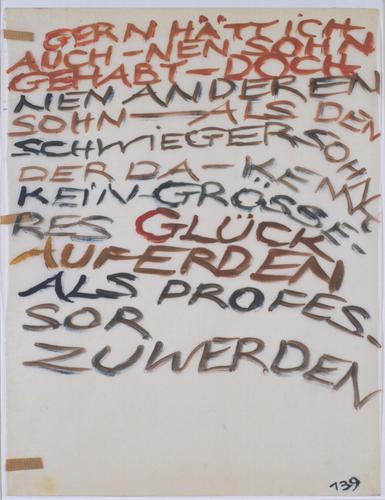 GERN HÄTT ICH
AUCH-NEN SOHN
GEHABT-DOCH
NEN ANDEREN
SOHN-ALS DEN
SCHWIEGERSOHN
DER DA-KENNT
KEIN GRÖSSE-
RES GLÜCK
AUF ERDEN
ALS PROFES-
SOR
ZU WERDEN
139